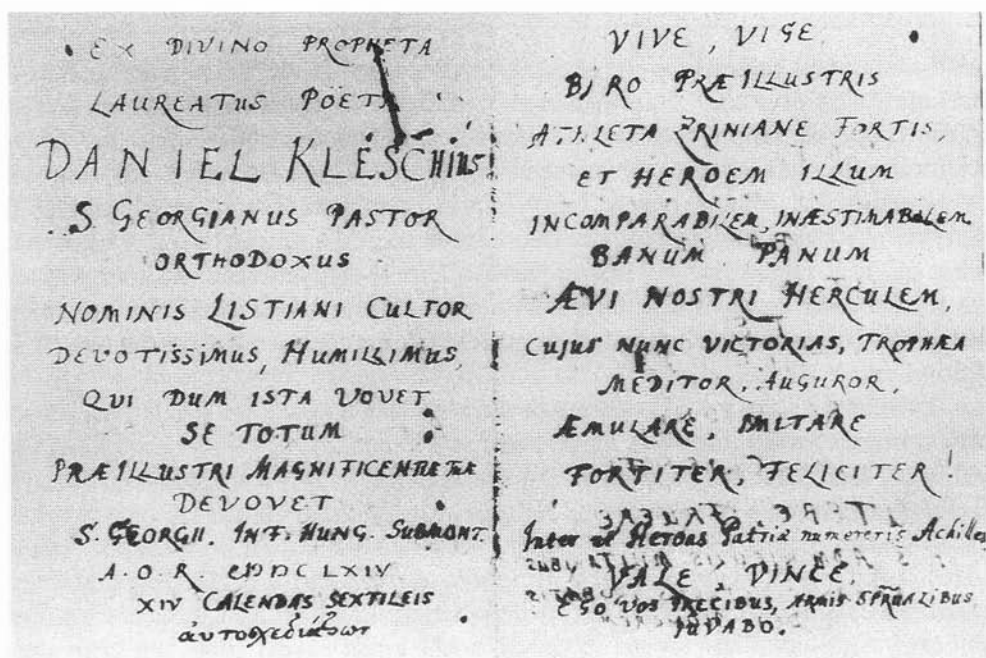 EX DIVINO PROPHETA
LAUREATUS POËTA
DANIEL KLESCHIUS
S GEORGIANUS PASTOR
ORTHODOXUS
NOMINIS LISTIANI CULTOR
DEVOTISSIMUS, HUMILLIMUS,
QUI DUM ISTA VOVET
SE TOTUM
PRÆILLUSTRI MAGNIFICENTIÆ TUÆ
DEVOVET
S. GEORGII. INF. HUNG. SUBMONT.
A. O. R. LXIV
XIV CALENDAS SEXTILEIS
αὐτοσχεδιάζων
VIVE, VIGE
BIRO PRÆILLUSTRIS
ATHLETA ZRINIANE FORTIS,
ET HEROEM ILLUM
INCOMPARABILEM, INÆSTIMABILEM
BANUM PANUM
ÆVI NOSTRI HERCULEM,
CUJUS NUNC VICTORIAS, TROPHÆA
MEDITOR, AUGUROR,
ÆMULARE, IMITARE
FORTITER, FELICITER!
Inter ut Heroas Patriæ numereris Achilles
VALE, VINCE,
EGO VOS PRECIBUS, ARMIS SPRUALIBUS
JUVABO.